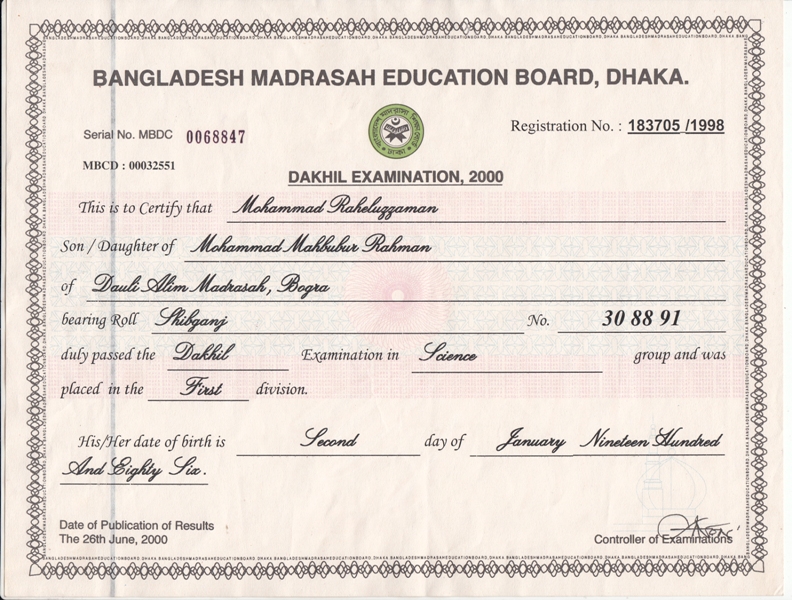 BANGLADESH MADRASAH EDUCATION BOARD, DHAKA.
Serial No. MBDC 0068847
Registration No. : 183705 /1998
MBCD : 00032551
DAKHIL EXAMINATION, 2000
This is to Certify that Mohammad Raheluzzaman
Son / Daughter of Mohammad Mahbubur Rahman
of Dauli Alim Madrasah, Bogra
bearing Roll Shibganj No. 30 88 91
duly passed the Dakhil Examination in Science group and was
placed in the First division.
His/Her date of birth is Second day of January Nineteen Hundred
And Eighty Six.
Date of Publication of Results
The 26th June, 2000
Controller of Examinations